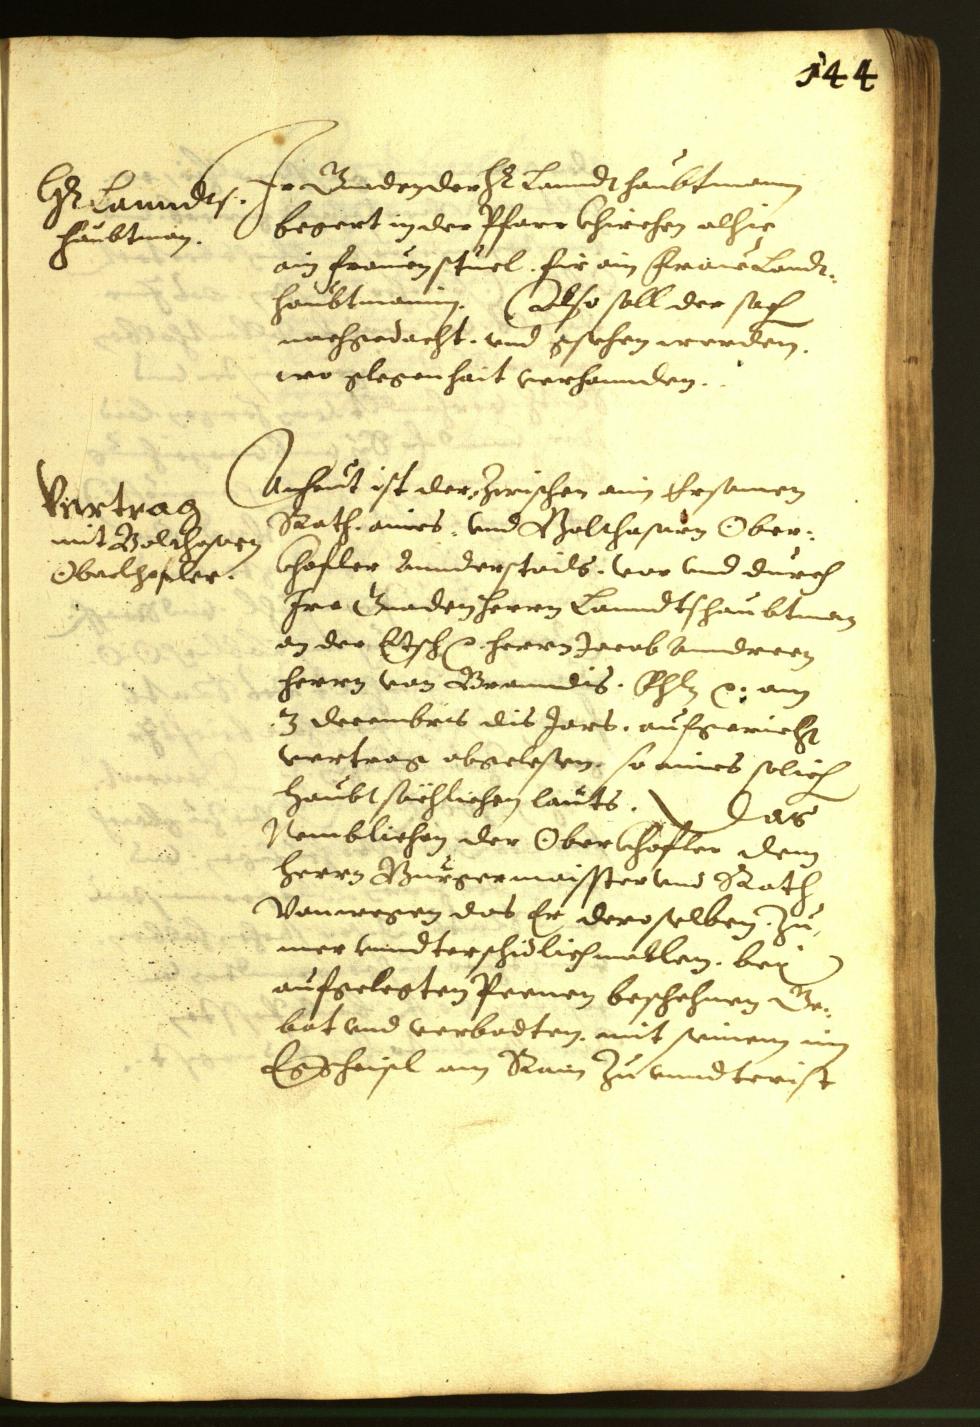 144
Hr Lanndts-
haubtman.
Ir Gnaden der Hr Lanndtshaubtmann
begert in der Pfarr Khirchen alhie
ain frauen stuel. für ain Frau Landts-
haubtmanin. Also soll der sach
nachgedacht. vnd gsehen werden.
wo glegenhait verhannden.
Vertrag
mit Balthasarn
Oberkhofler.
Anheut ist der Zwischen aim Ersamen
Rath. aines. vnd Balthasarn Ober-
khofler annderstails. vor vnd durch
Ire Gnaden herrn Lanndtshaubtman
an der Etsch herrn Jacob Anndreen
herrn von Branndis. am
3 decembris dis Jars. aufgericht
vertrag abgelesen. so aines solich
haubtsächlichen lauts. Das
Nemblichen der Oberkhofler dem
herrn Burgermaister vnd Rath
Vonwegen das Er deroselben. zu
mer vnndterschidlichmallen. bei
aufgelegten Peenen beschehnen Ge-
bot vnd verbodten. mit seinem im
Eggheusl am Rain Zu vnndterist